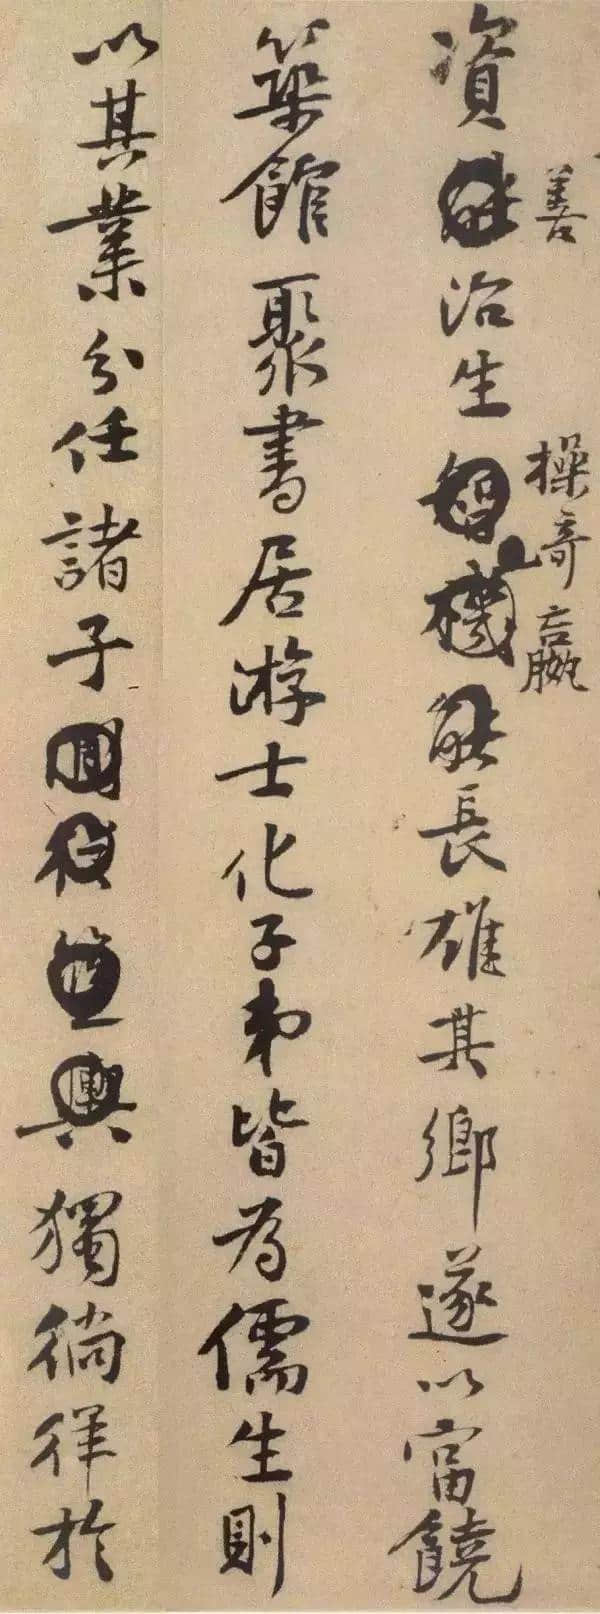 善操奇贏
資治生長雄其鄉遂以富饒
築館聚書居游士化子弟皆為儒生則
以其業分任諸子獨徜徉於